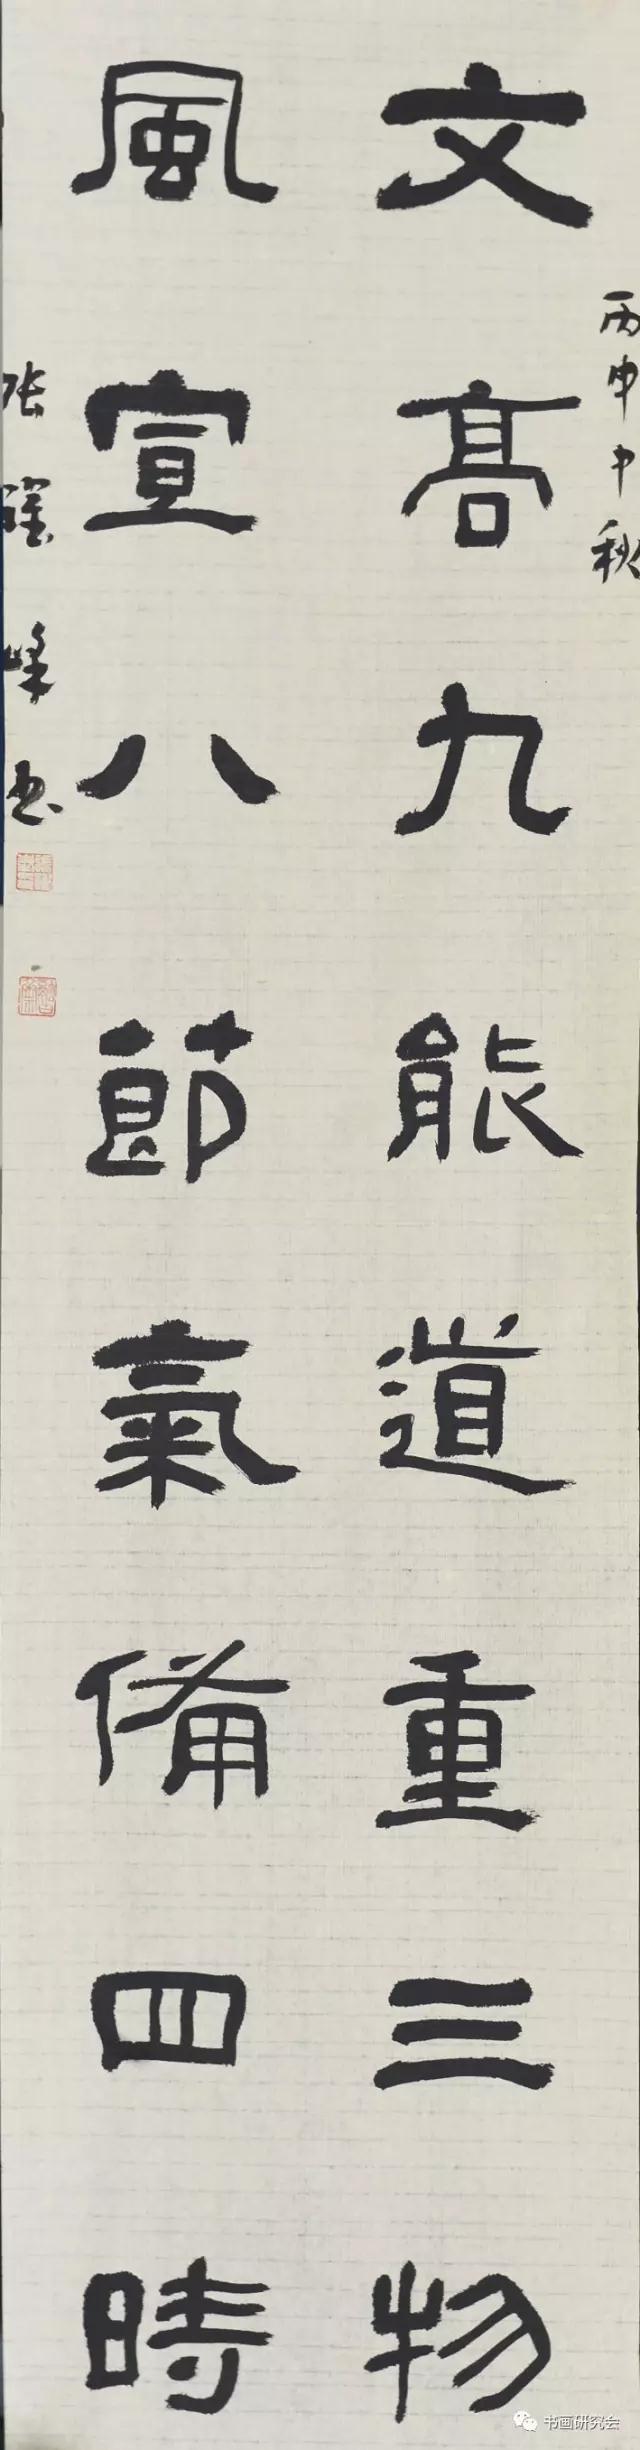 丙申中秋
文高九能道重三物
風宣八節氣備四時
张耀峰书
书画研究会